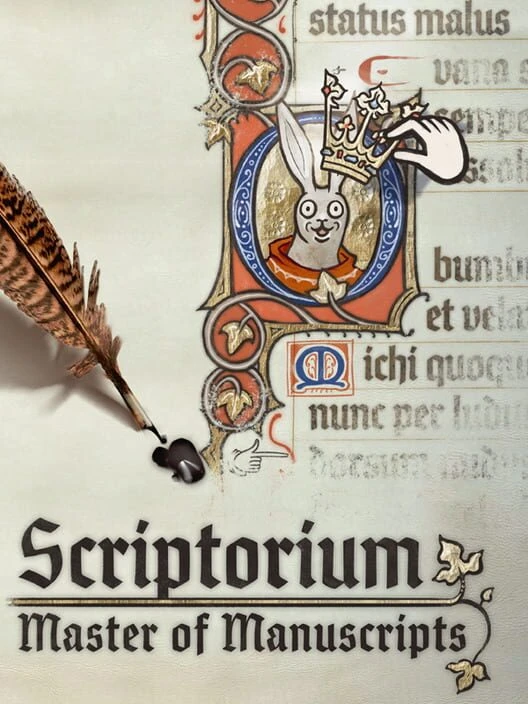 status malus
vana s
sempe
ssolu
Obumb
et vela
Michi quoqu
nunc per ludu
dorsum nudu
Scriptorium
Master of Manuscripts